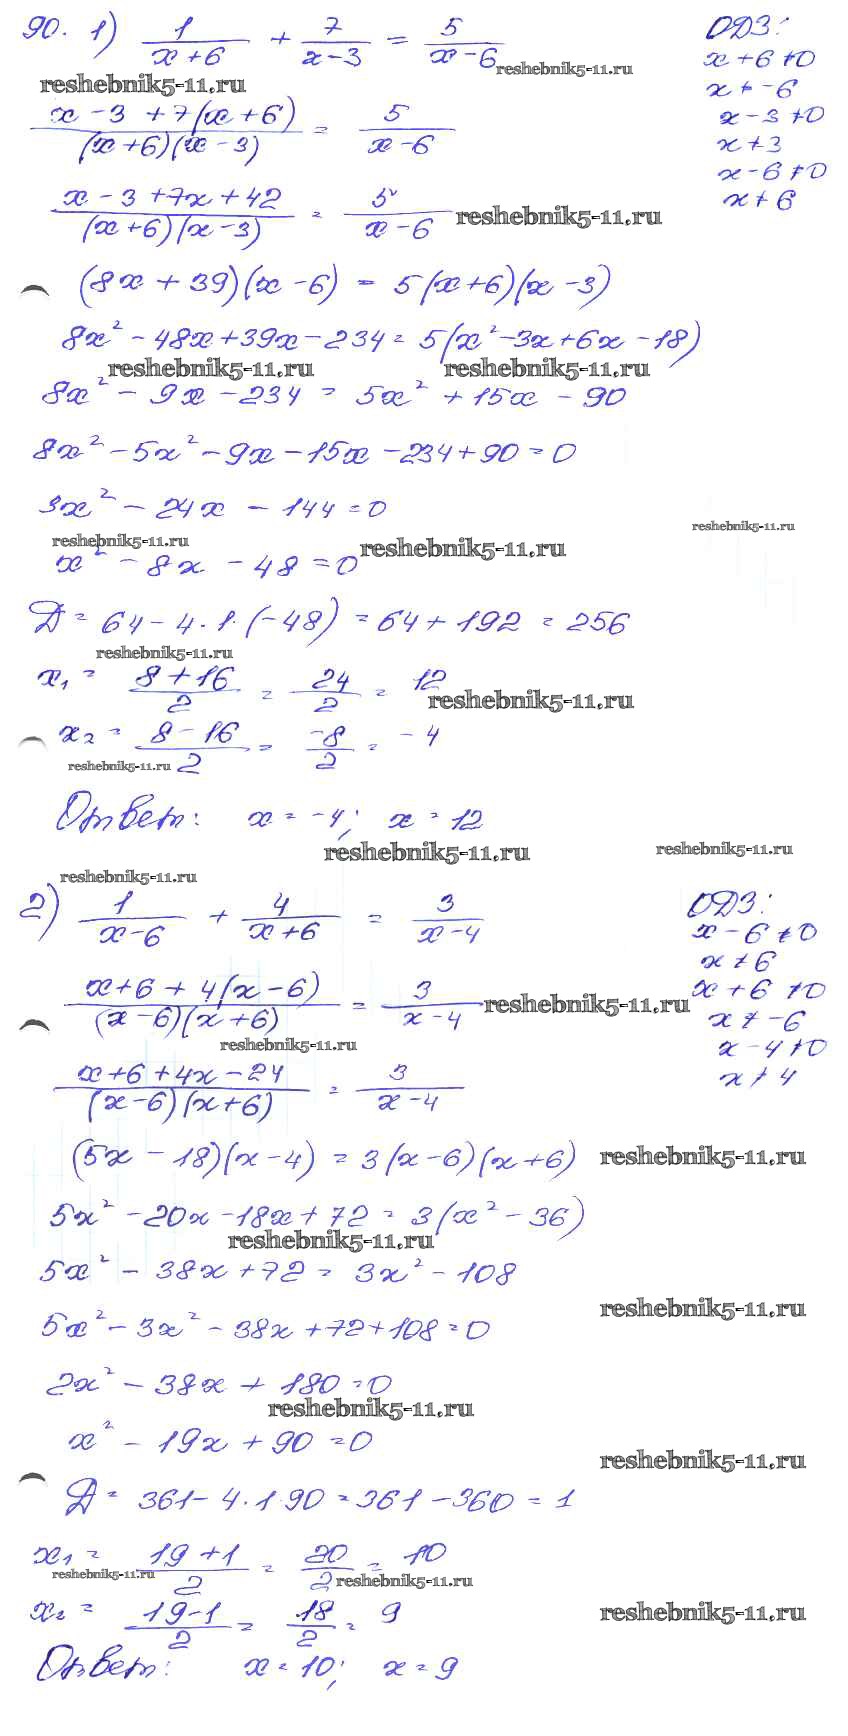 90. 1) 1/(x+6) + 7/(x-3) = 5/(x-6)
ОДЗ:
x+6≠0
x≠-6
x-3≠0
x≠3
x-6≠0
x≠6
reshebnik5-11.ru
reshebnik5-11.ru
(x-3+7(x+6))/((x+6)(x-3)) = 5/(x-6)
(x-3+7x+42)/((x+6)(x-3)) = 5/(x-6)
reshebnik5-11.ru
(8x+39)(x-6) = 5(x+6)(x-3)
8x²-48x+39x-234=5(x²-3x+6x-18)
reshebnik5-11.ru reshebnik5-11.ru
8x²-9x-234 = 5x²+15x-90
8x²-5x²-9x-15x-234+90=0
3x²-24x-144=0
reshebnik5-11.ru
reshebnik5-11.ru reshebnik5-11.ru
x²-8x-48=0
Д=64-4·1·(-48)=64+192=256
reshebnik5-11.ru
x₁ = (8+16)/2 = 24/2 = 12
reshebnik5-11.ru
x₂ = (8-16)/2 = -8/2 = -4
reshebnik5-11.ru
Ответ: x=-4; x=12
reshebnik5-11.ru reshebnik5-11.ru
reshebnik5-11.ru
2) 1/(x-6) + 4/(x+6) = 3/(x-4)
ОДЗ:
x-6≠0
x≠6
x+6≠0
x≠-6
x-4≠0
x≠4
(x+6+4(x-6))/((x-6)(x+6)) = 3/(x-4)
reshebnik5-11.ru
reshebnik5-11.ru
(x+6+4x-24)/((x-6)(x+6)) = 3/(x-4)
(5x-18)(x-4)=3(x-6)(x+6)
reshebnik5-11.ru
5x²-20x-18x+72=3(x²-36)
reshebnik5-11.ru
5x²-38x+72=3x²-108
reshebnik5-11.ru
5x²-3x²-38x+72+108=0
2x²-38x+180=0
reshebnik5-11.ru
x²-19x+90=0
reshebnik5-11.ru
Д=361-4·1·90=361-360=1
x₁ = (19+1)/2 = 20/2 = 10
reshebnik5-11.ru reshebnik5-11.ru
x₂ = (19-1)/2 = 18/2 = 9
reshebnik5-11.ru
Ответ: x=10; x=9